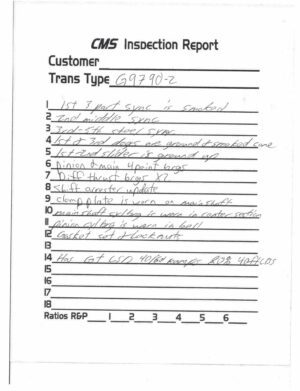 CMS Inspection Report
Customer
Trans Type G9790-2
1 1st 3 part sync is smoked
2 2nd middle sync
3 3rd-5th steel sync
4 1st & 3rd dogs are ground & smoked cone
5 1st-2nd slider is ground up
6 pinion & main 4point brgs
7 Diff thrust brgs X2
8 shift arrester update
9 clamp plate is worn on mainshaft
10 mainshaft cyl brg is worn in center section
11 pinion cyl brg is worn in bell
12 Gasket set & locknuts
13
14 Has Gat LSD 40/60
15
16
17
18
Ratios R&P 1 2 3 4 5 6